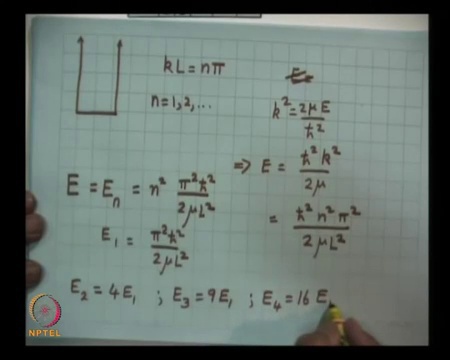 kL = nπ
n = 1, 2, ...
k² = 2μE / ħ²
⇒ E = ħ²k² / 2μ
= ħ²n²π² / 2μL²
E = Eₙ = n² π²ħ² / 2μL²
E₁ = π²ħ² / 2μL²
E₂ = 4E₁ ; E₃ = 9E₁ ; E₄ = 16 E
NPTEL